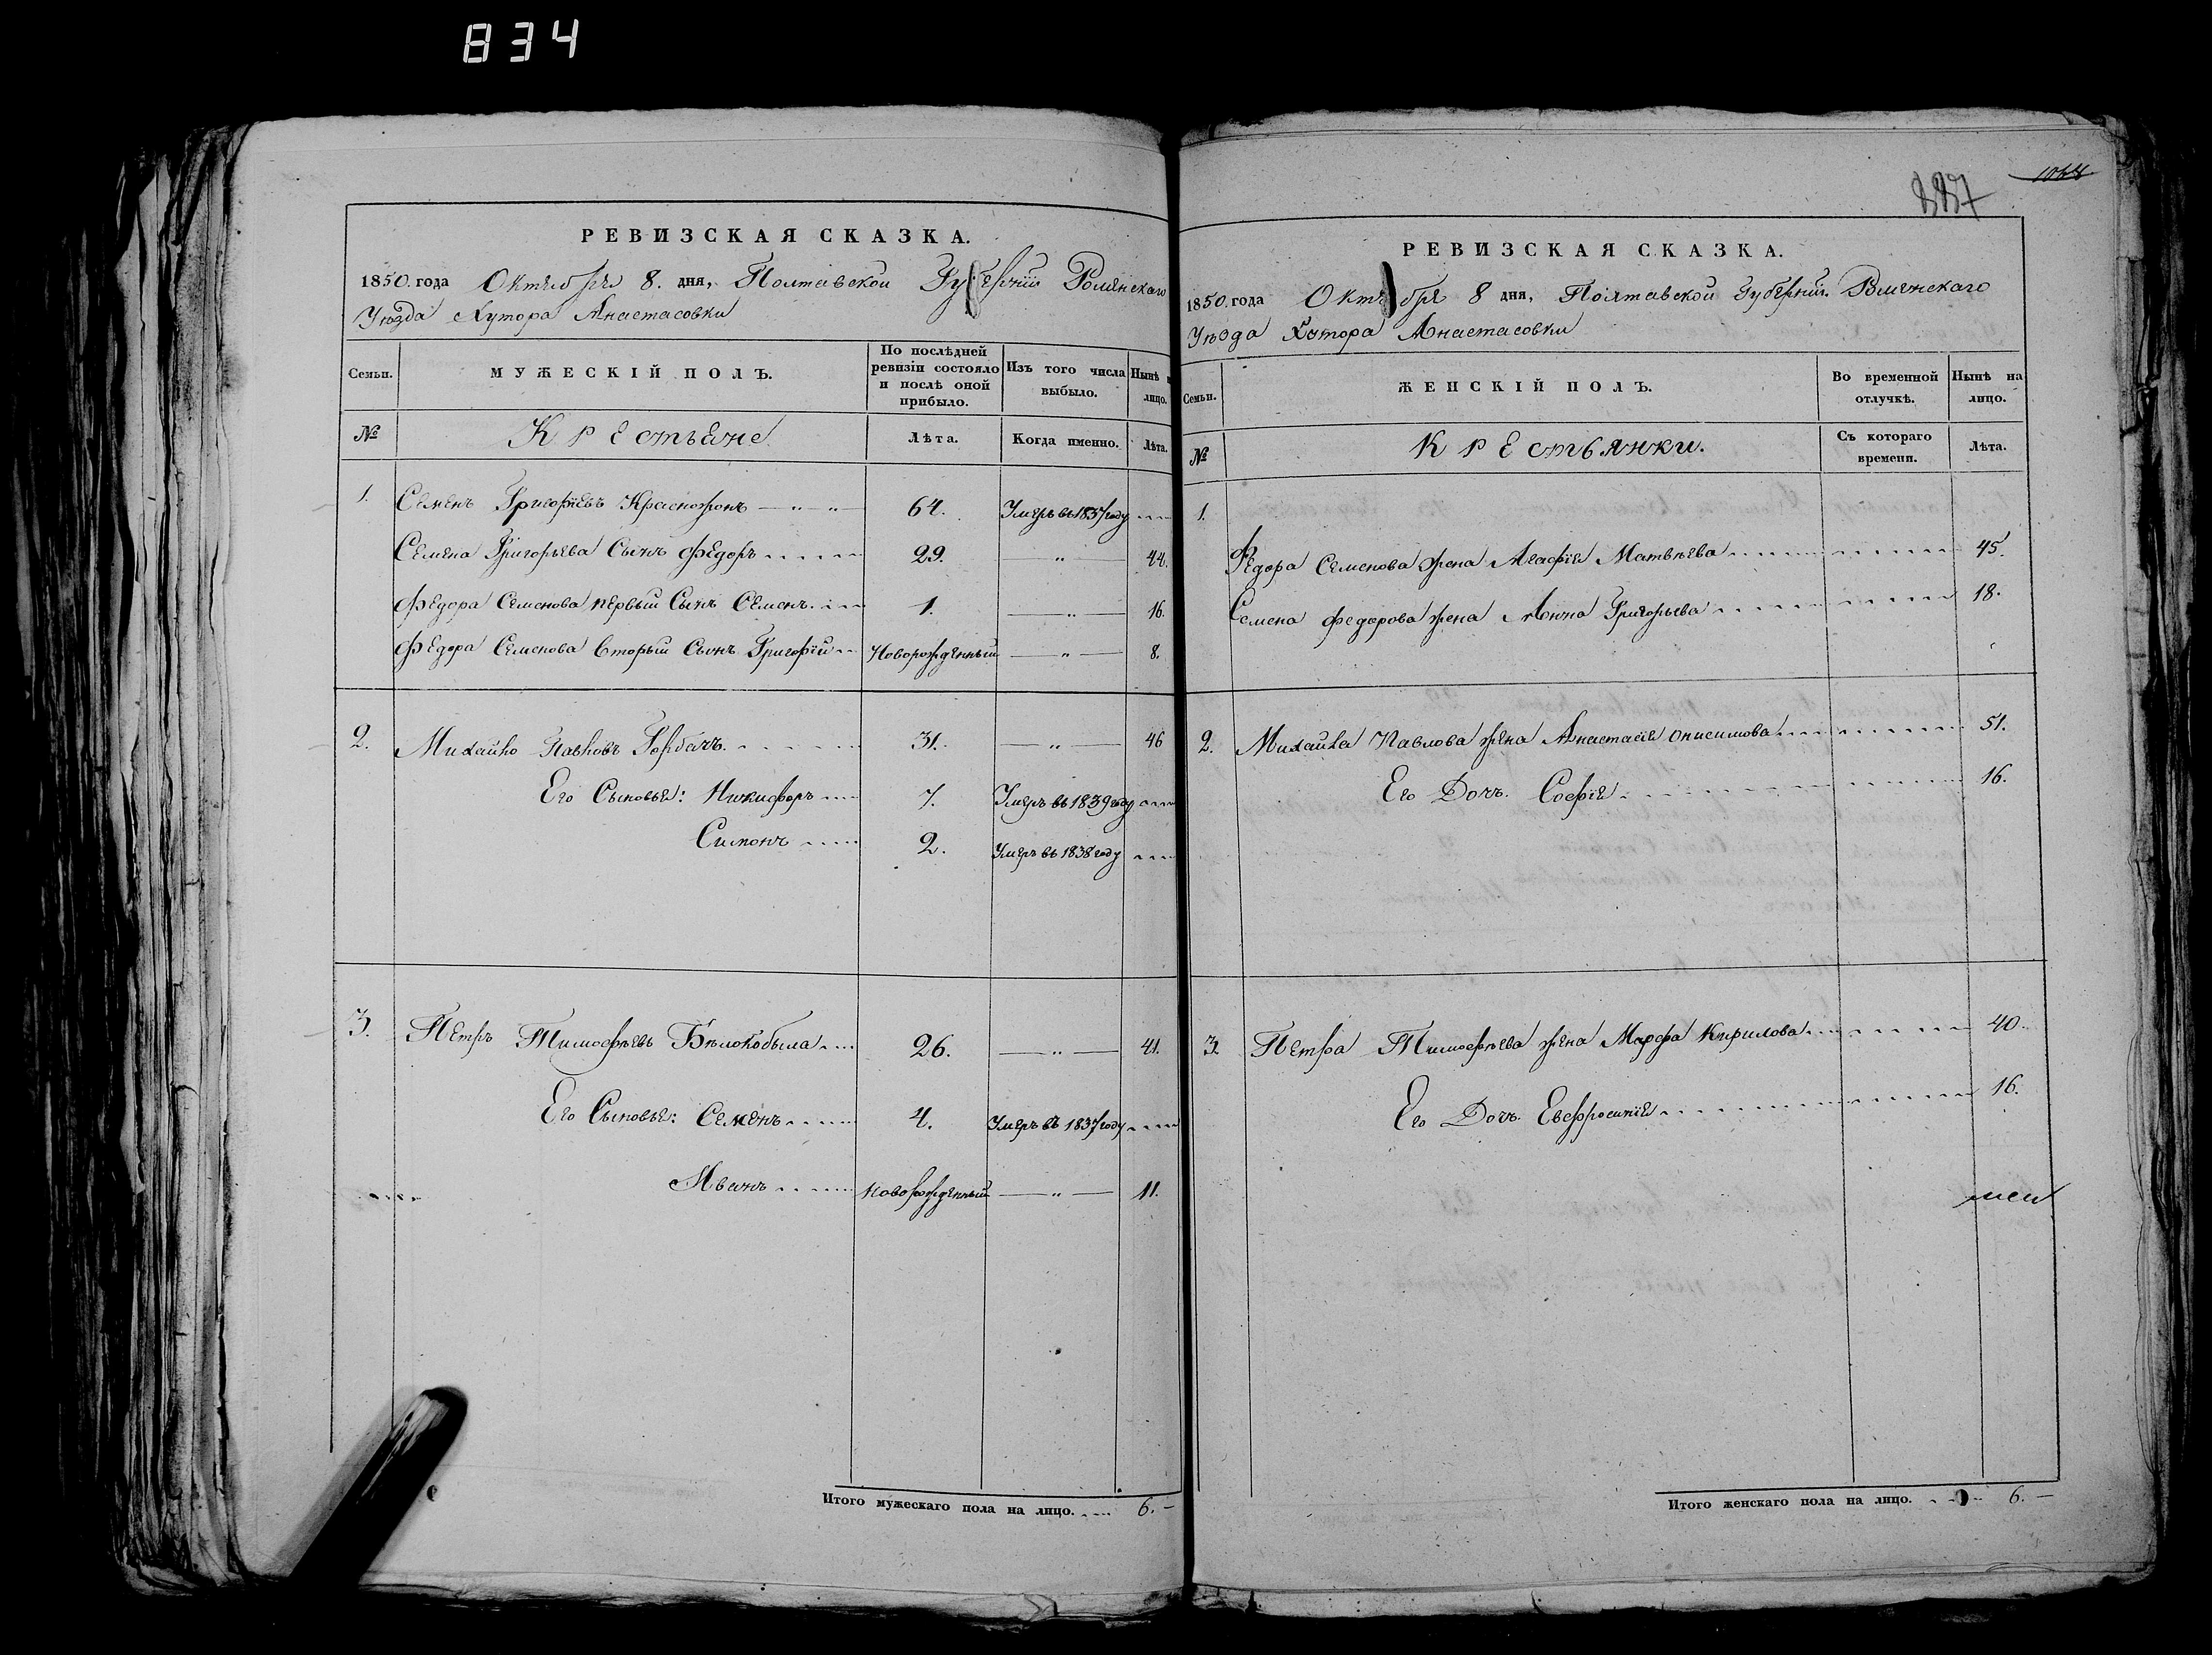 834
РЕВИЗСКАЯ СКАЗКА.
1850. года Октября 8. дня, Полтавской Губернии Роменскаго
Уезда Хутора Анастасовки
Семьи. МУЖЕСКІЙ ПОЛЪ. По послѣдней ревизіи состояло и послѣ оной прибыло. Изъ того числа выбыло. Нынѣ лицо.
№ Крестьяне Лѣта. Когда именно. Лѣта.
1. Семенъ Григоріевъ — „ „ — 64. Умеръ въ 1837 году
Семена Григорьева Сынъ Федоръ 29. — „ — 44.
Федора Семенова первый Сынъ Семенъ. 1. — „ — 16.
Федора Семенова Вторый Сынъ Григорій Новорожденный — „ — 8.
2. Михайло Павловъ Горбачъ. 31. — „ — 46
Его Сыновья: Никифоръ 7. Умеръ въ 1839 году
Симонъ 2. Умеръ въ 1838 году
3. Петръ Тимофѣевъ Бѣлокобыла 26. — „ — 41.
Его Сыновья: Семенъ 4. Умеръ въ 1837 году
Иванъ новорожденный — „ — 11.
Итого мужескаго пола на лицо. 6. —
1044
РЕВИЗСКАЯ СКАЗКА.
1850. года Октября 8 дня, Полтавской Губерніи. Роменскаго
Уезда Хутора Анастасовки
Семьи. ЖЕНСКІЙ ПОЛЪ. Во временной отлучкѣ. Нынѣ на лицо.
№ Крестьянки. Съ котораго времени. Лѣта.
1.
Федора Семенова жена Агафія Матвѣева 45.
Семена Федорова жена Анна Григорьева 18.
2. Михайла Павлова жена Анастасія Онисимова 51.
Его Дочь Софія 16.
3. Петра Тимофѣева жена Марфа Кирилова 40.
Его Дочь Евфросинія 16.
Итого женскаго пола на лицо. 6. —